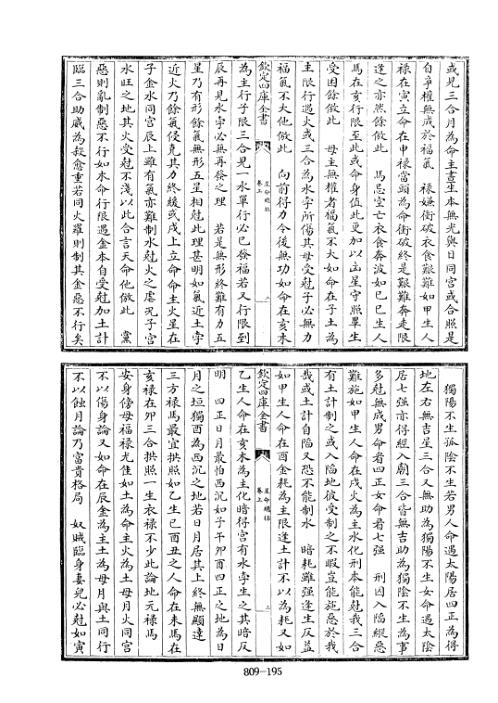 或見三合月為命主晝生本無光與日同宮或合照是
自專權無成於福氣　祿嫌衝破衣食艱難如甲生人
祿在寅立命在申祿當頭為命衝破終是艱難奔走限
逢之亦然餘倣此　馬忌空亡衣食奔波如己巳生人
馬在亥行限至此或命身值此更加以凶星守照畢生
受困餘倣此　母主無權者福氣不大如命在子土為
主限行遇火或三合為水孛所傷其母受尅子必無力
福氣不大他倣此　向前得力今後無功如命在亥木
欽定四庫全書
星命總括
卷上
為主行子限三合見一水單行必已發福若又行限到
辰再見水孛必無再發之理　若是無形終難有力五
星乃有形餘氣無形五星相尅此理甚明如氣近土孛
近火乃餘氣侵其力終緩或戌上立命命主火星在
子金水同宮辰上雖有氣亦難制水尅火之虐況子宮
水旺之地其火受尅不淺以此合言天命他倣此　黨
惡則亂制惡不行如木命行限遇金本自受尅加土計
臨三合助威為救愈重若同火羅則制其金惡不行矣
獨陽不生孤陰不生若男人命遇太陽居四正為得
地左右無吉星三合又無助為獨陽不生女命遇太陰
居七强亦得經入廟三合皆無吉助為獨陰不生為事
多尅無成男命看四正女命看七强　刑因入陷縱惡
難施如甲生人命在戌火為主水化刑本能尅我三合
有土計制之或入陷地彼受制之不暇豈能施惡於我
哉或土計自陷又恐不能制水　暗耗雖强逢生反益
如甲生人命在酉金耗為主限逢土計不以為耗又如
欽定四庫全書
星命總括
卷上
乙生人命在亥木為主化暗得宮有水孛生之其暗反
明　四正日月最怕西沉如子午卯酉四正之地為日
月之垣獨酉為西沉之地若日月居其上終無顯達
三方祿馬最宜拱照如乙生巳酉丑之人命在未馬在
亥祿在卯三合拱照一生衣祿不少此論地元祿馬
安身傍母福祿尤佳如土為命主火為土母月火同宮
不以傷身論又如命在辰金為主土為母月與土同行
不以蝕月論乃富貴格局　奴賊臨身妻兒必尅如寅
809-195